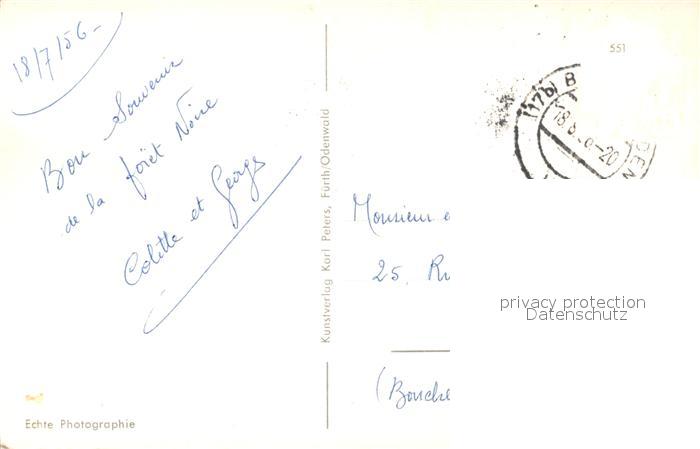 18/7/56-
Bon Souvenir
de la forêt Noire
Colette et Georges
Kunstverlag Karl Peters, Fürth/Odenwald
Echte Photographie
551
(17b) B
18.
-20
DEN
Monsieur
25, Ru
privacy protection
Datenschutz
(Bouche